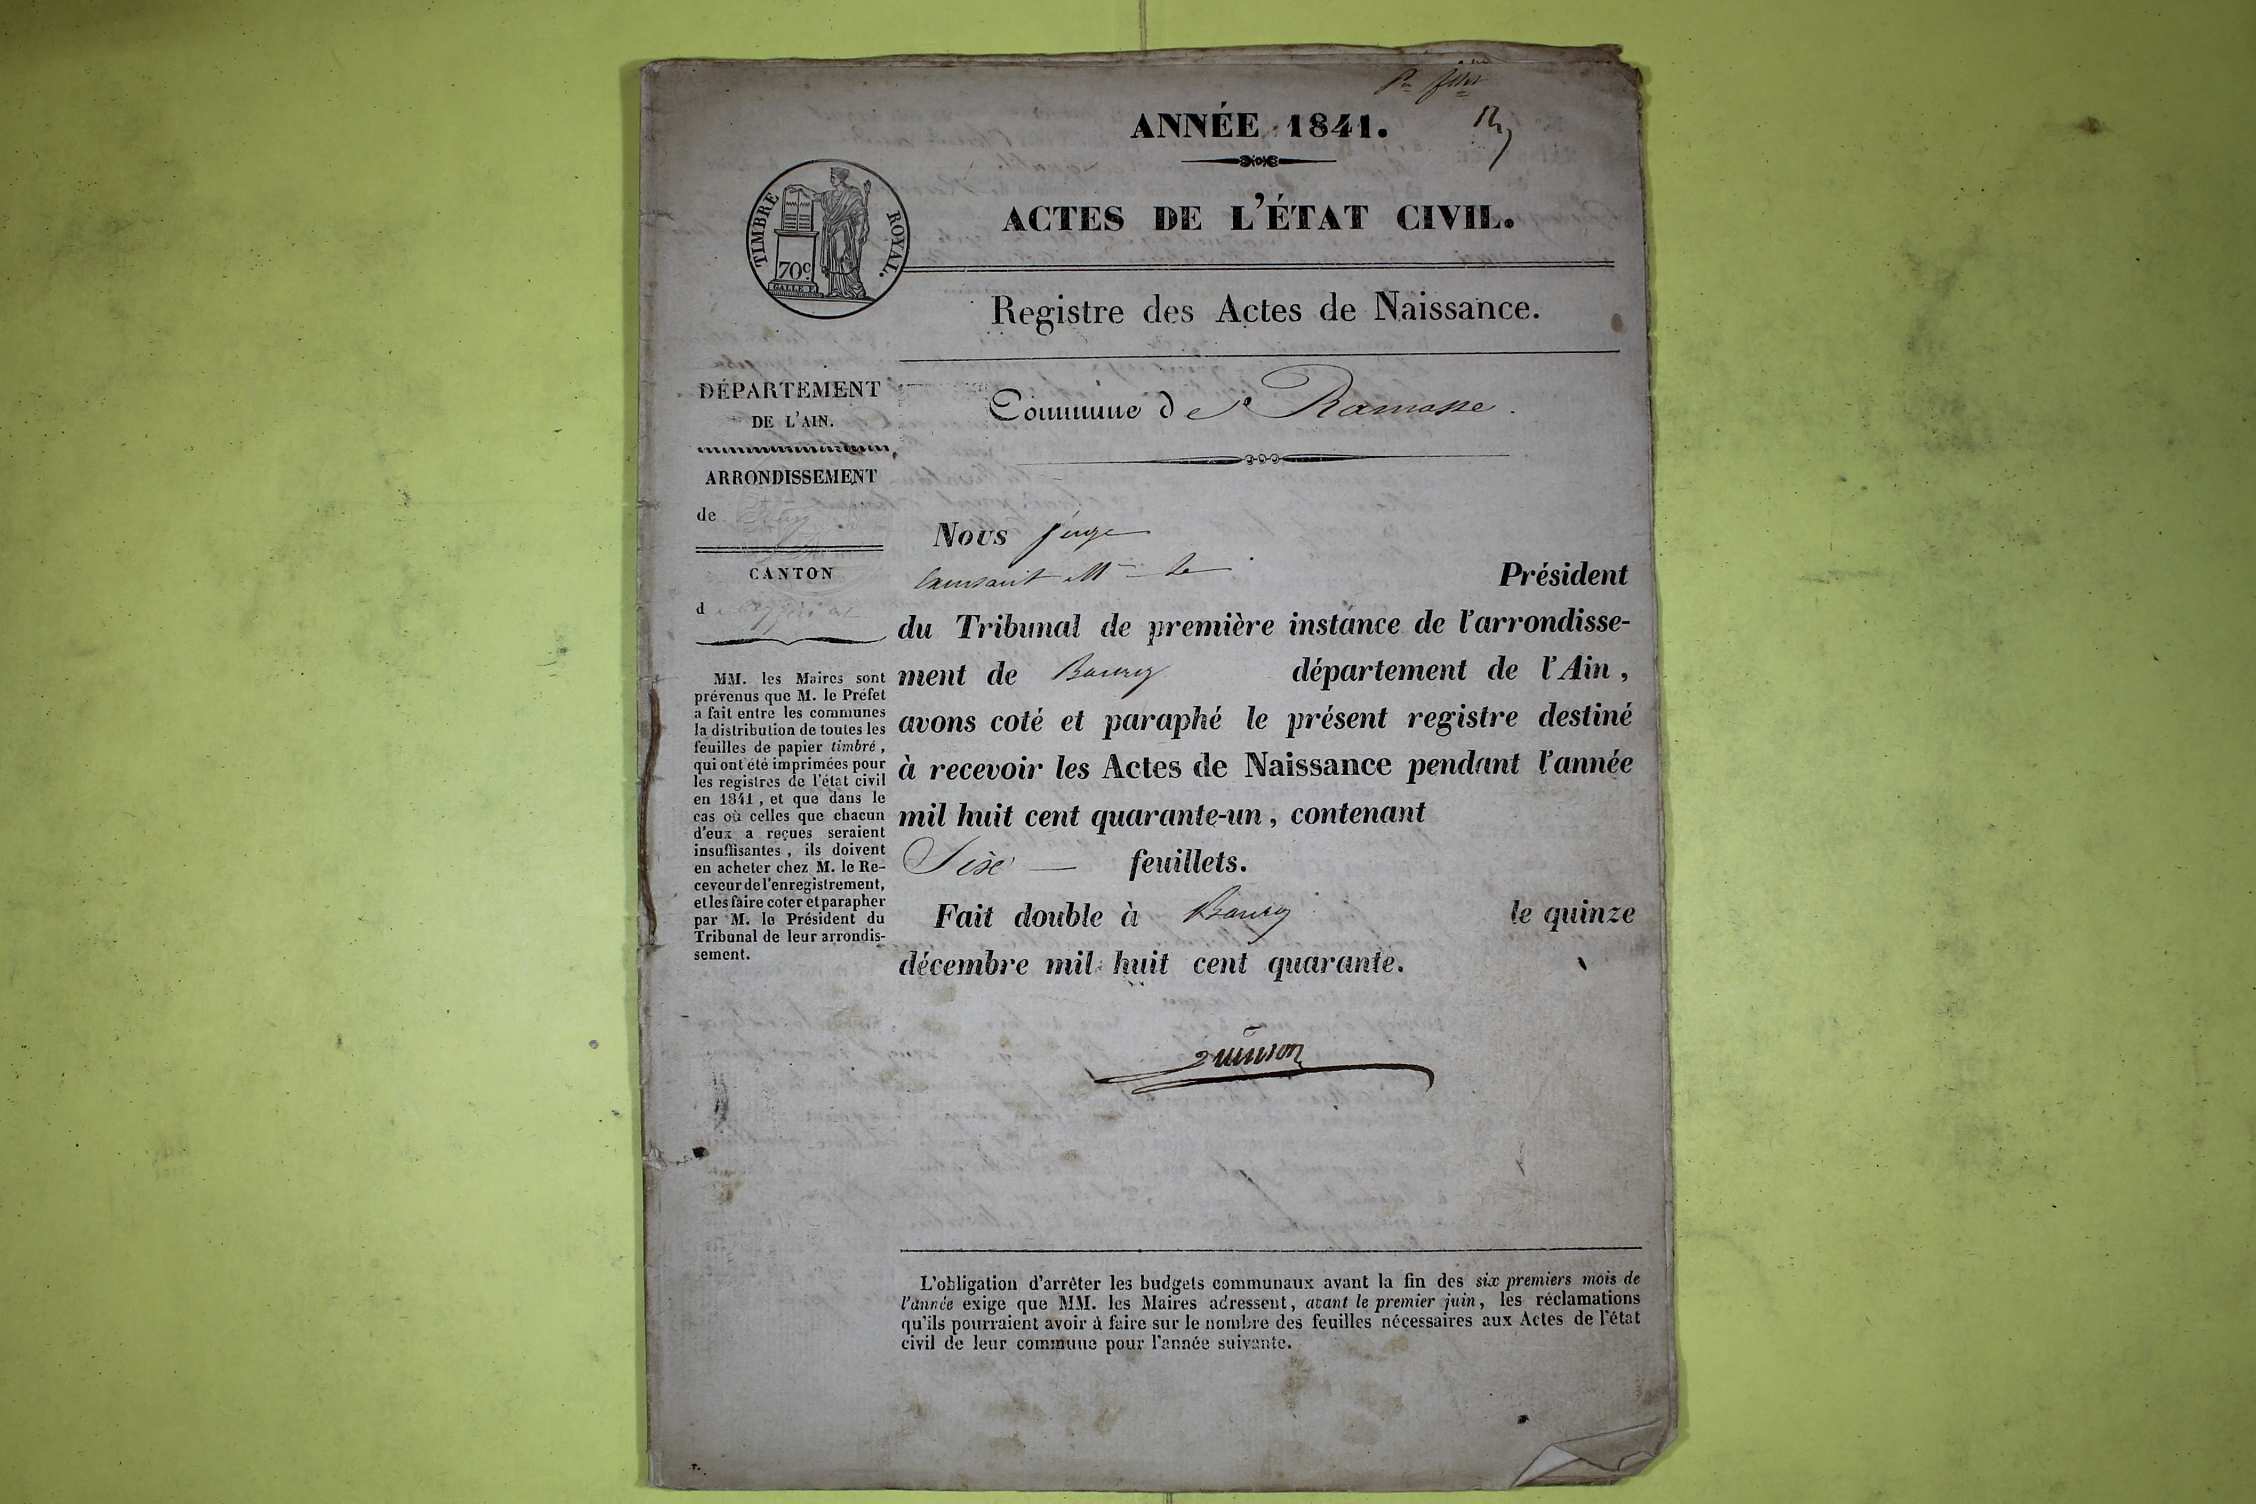 ANNÉE 1841.
TIMBRE ROYAL.
70c.
GALLE F.
ACTES DE L'ÉTAT CIVIL.
Registre des Actes de Naissance.
DÉPARTEMENT
DE L'AIN.
ARRONDISSEMENT
de
CANTON
d
MM. les Maires sont
prévenus que M. le Préfet
a fait entre les communes
la distribution de toutes les
feuilles de papier timbré,
qui ont été imprimées pour
les registres de l'état civil
en 1841, et que dans le
cas où celles que chacun
d'eux a reçues seraient
insuffisantes, ils doivent
en acheter chez M. le Re-
ceveur de l'enregistrement,
et les faire coter et parapher
par M. le Président du
Tribunal de leur arrondis-
sement.
Commune de Ramasse.
Nous juge
le Président
du Tribunal de première instance de l'arrondisse-
ment de Bourg département de l'Ain,
avons coté et paraphé le présent registre destiné
à recevoir les Actes de Naissance pendant l'année
mil huit cent quarante-un, contenant
Six feuillets.
Fait double à Bourg le quinze
décembre mil huit cent quarante.
L'obligation d'arrêter les budgets communaux avant la fin des six premiers mois de
l'année exige que MM. les Maires adressent, avant le premier juin, les réclamations
qu'ils pourraient avoir à faire sur le nombre des feuilles nécessaires aux Actes de l'état
civil de leur commune pour l'année suivante.